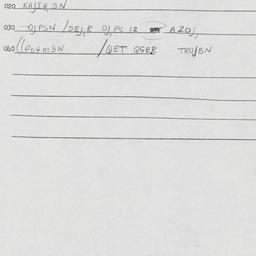 020 KAJIG, SN
030 OJPSN / DEJ, R OJ, PS IZ AZOJ,
040 ((POUMSN / QET QGER TROJBN